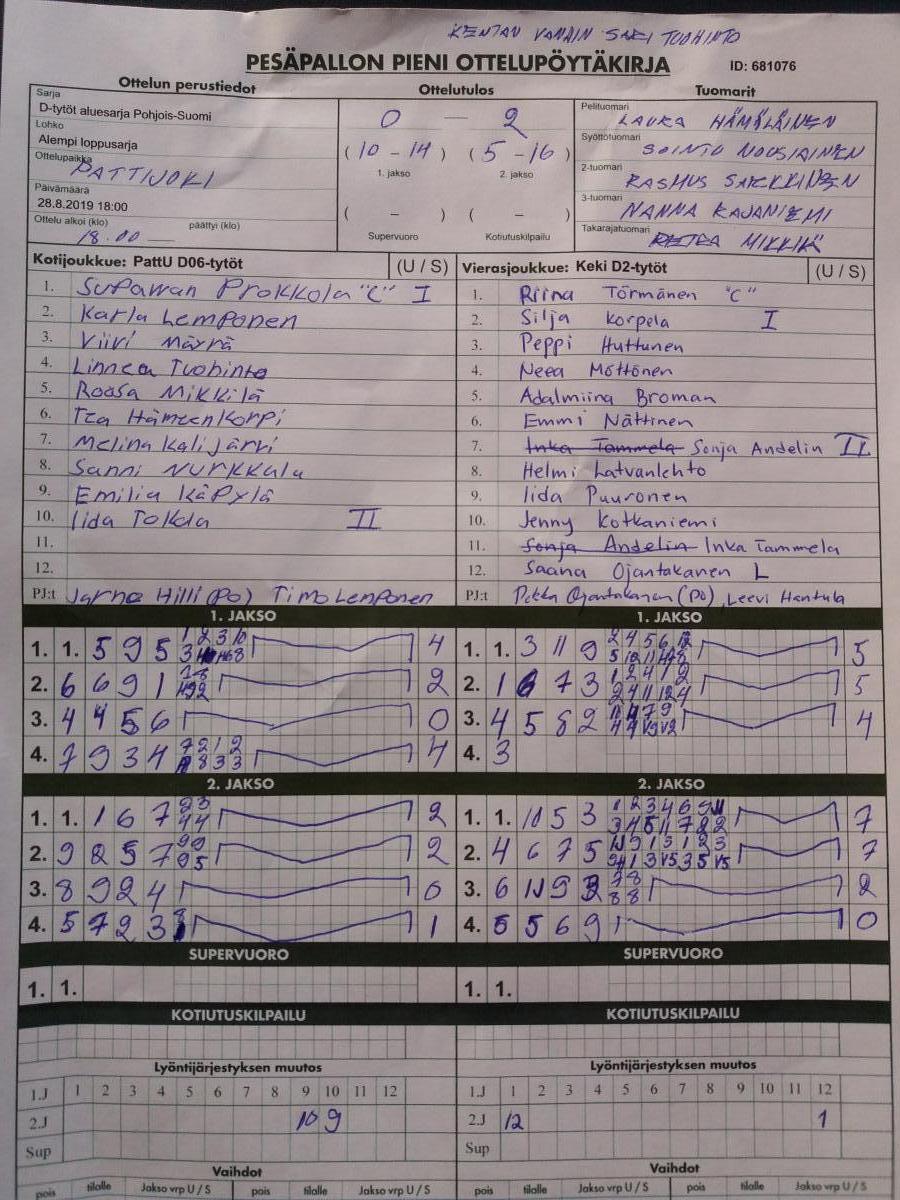 KENTAN VANHIN SAKI TUOHINTO
PESÄPALLON PIENI OTTELUPÖYTÄKIRJA
ID: 681076
Ottelun perustiedot Ottelutulos Tuomarit
Sarja
D-tytöt aluesarja Pohjois-Suomi
Lohko
Alempi loppusarja
Ottelupaikka
PATTIJOKI
Päivämäärä
28.8.2019 18:00
Ottelu alkoi (klo) päättyi (klo)
18.00
0 — 2
(10 - 14) (5 - 16)
1. jakso 2. jakso
( - ) ( - )
Supervuoro Kotiutuskilpailu
Pelituomari
LAURA HÄMÄLÄINEN
Syöttötuomari
SOINTU NOUSIAINEN
2-tuomari
RASMUS
3-tuomari
NANNA KAJANIEMI
Takarajatuomari
MIKKILÄ
Kotijoukkue: PattU D06-tytöt (U / S)
1. Supawan Prokkola "C" I
2. Karla Lemponen
3. Viivi Mäyrä
4. Linnea Tuohinto
5. Roosa Mikkilä
6. Tea Hämeenkorpi
7. Melina Kalijärvi
8. Sanni Nurkkala
9. Emilia Käpylä
10. Iida Tokola II
11.
12.
PJ:t Jarno Hilli (PO) Timo Lemponen
Vierasjoukkue: Keki D2-tytöt (U / S)
1. Riina Törmänen "C"
2. Silja Korpela I
3. Peppi Huttunen
4. Neea Möttönen
5. Adalmiina Broman
6. Emmi Nättinen
7. Inka Tammela Sonja Andelin II
8. Helmi Latvanlehto
9. Iida Puuronen
10. Jenny Kotkaniemi
11. Sonja Andelin Inka Tammela
12. Saana Ojantakanen L
PJ:t Pekka Ojantakanen (PO), Leevi Hantula
1. JAKSO
1. 1. 5 9 5 4
2. 6 6 9 1 2
3. 4 4 5 6 0
4. 7 9 3 4 4
1. JAKSO
1. 1. 3 11 9 5
2. 1 6 7 3 5
3. 4 5 8 2 4
4. 3
2. JAKSO
1. 1. 1 6 7 2
2. 9 8 5 7 2
3. 8 9 2 4 0
4. 5 7 2 3 1
2. JAKSO
1. 1. 10 5 3 7
2. 4 6 7 5 7
3. 6 9 2
4. 5 5 6 9 0
SUPERVUORO
1. 1.
SUPERVUORO
1. 1.
KOTIUTUSKILPAILU
KOTIUTUSKILPAILU
Lyöntijärjestyksen muutos
1.J 1 2 3 4 5 6 7 8 9 10 11 12
2.J 10 9
Sup
Vaihdot
pois tilalle Jakso vrp U / S pois tilalle Jakso vrp U / S
Lyöntijärjestyksen muutos
1.J 1 2 3 4 5 6 7 8 9 10 11 12
2.J 12 1
Sup
Vaihdot
pois tilalle Jakso vrp U / S pois tilalle Jakso vrp U / S